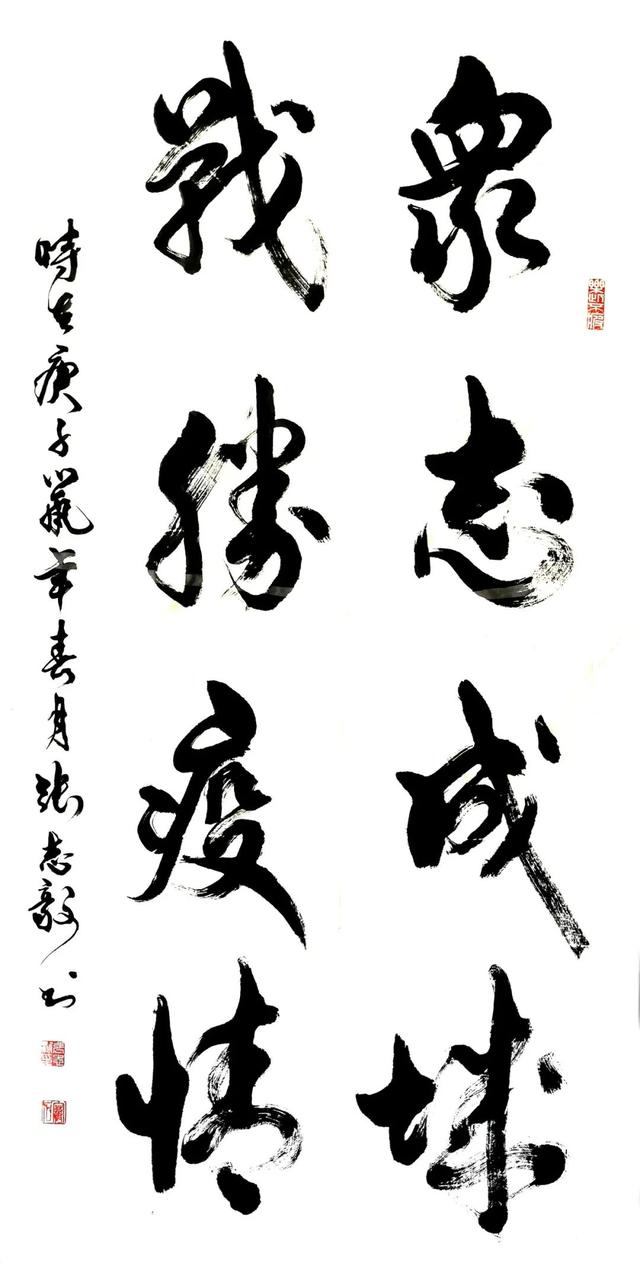 衆志成城
戰勝疫情
時在庚子鼠年春月張志毅書